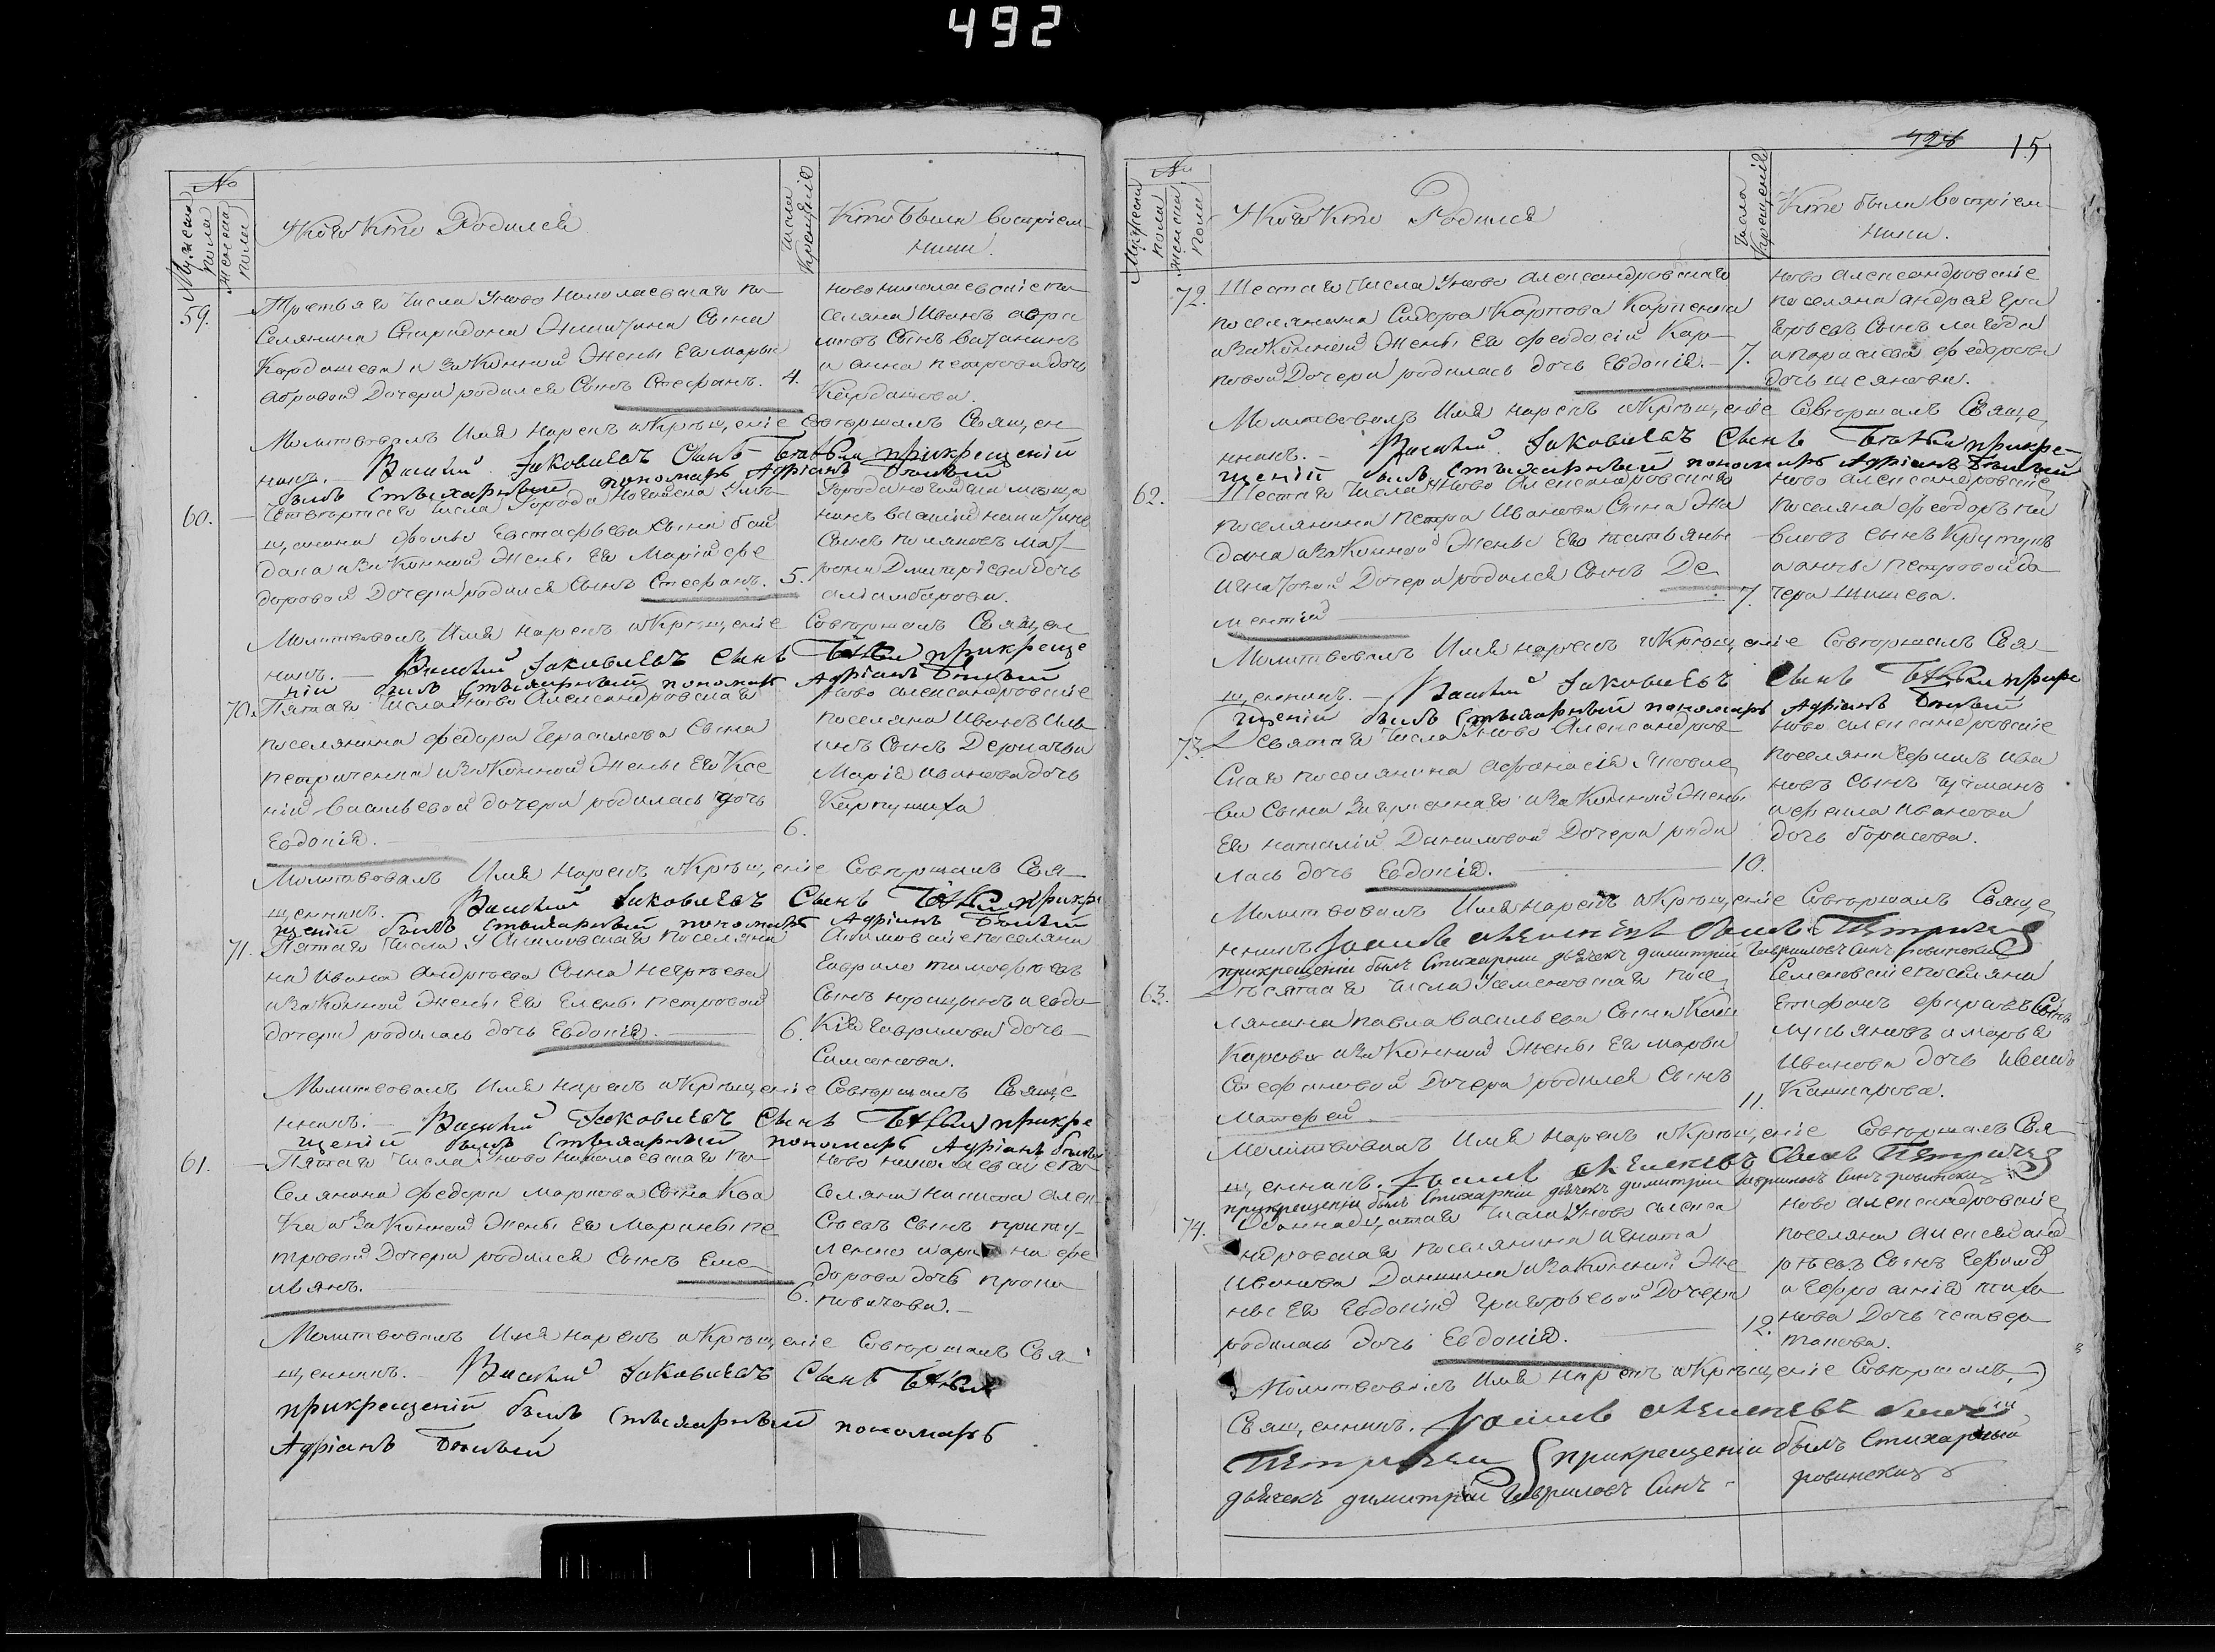 492
№
Мужеска пола
Женска пола
У кого кто Родился
Числа Крещенія
Кто были воспріем-
ники.
59.
Третьяго Числа Уново Николаевскаго по-
селянина Спиридона Никитина Сына
Кардашева и Законной Жены Его Марьи
Дочери родился Сынъ Стефанъ.
4.
ново николаевскіе по-
селяна Иванъ
Сынъ
и анна петрова дочь
Молитвовалъ Имя нарекъ и Крещеніе Совершалъ Священ-
никъ. Василій Іаковлевъ Сынъ при креще­ній
былъ Стихарный пономаръ Адріанъ Бѣлый
60.
Четвертаго Числа Города Ногайска У мѣ-
щанина Фомы Евстафьева Сына бой
дача и Законной Жены Его Маріи Фе
доровой Дочери родился Сынъ Стефанъ.
5.
Города Ногайска мѣща
нинъ василій никитинъ
Сынъ поляковъ мат-
рона Дмитріева дочь
Молитвовалъ Имя нарекъ и Крещеніе Совершалъ Священ
никъ. — Василій Іаковлевъ Сынъ при креще
ній былъ Стихарный пономаръ Адріанъ Бѣлый
70.
Пятаго Числа Уново Александровскаго
поселянина федора Герасимова Сына
петриченка и Законной Жены Его Ксе
ніи васильевой дочери родилась дочь
Евдокія.
6.
ново александровскіе
поселяна Иванъ Иль-
инъ Сынъ Деркачъ и
Марія иванова дочь
Карпушиха
Молитвовалъ Имя нарекъ и Крещеніе Совершалъ Свя-
щенникъ. Василій Іаковлевъ Сынъ при кре
щеній былъ Стихарный пономаръ Адріанъ Бѣлый
71.
Пятаго Числа У Акимовскаго поселяни
на Ивана Андреева Сына нечаева
и Законной Жены Его Елены петровой
дочери родилась дочь Евдокія.
6.
Акимовскіе поселяна
Гаврило тимофеевъ
Сынъ и Евдо-
кія Гаврилова дочь
Симонова.
Молитвовалъ Имя нарекъ и Крещеніе Совершалъ Свяще
нникъ. — Василій Іаковлевъ Сынъ при кре
щеній былъ Стихарный пономаръ Адріанъ Бѣлый
61.
Пятаго Числа Уново Николаевскаго по-
селянина федора маркова Сына Ква
ка и Законной Жены Его Марины пе
тровой Дочери родился Сынъ Еме-
льянъ.
6.
ново николаевскіе по-
селяна никита алек-
сѣевъ Сынъ приту-
ленко и на фе
дорова дочь проко
повичова. —
Молитвовалъ Имя нарекъ и Крещеніе Совершалъ Свя
щенникъ. — Василій Іаковлевъ Сынъ
при крещеній былъ Стихарный пономаръ
Адріанъ Бѣлый
15
№
Мужеска пола
Женска пола
У кого кто Родился
Числа Крещенія
Кто были воспріем-
ники.
72.
Шестаго Числа Уново Александровскаго
поселянина Сидора Карпова Карпенка
и Законной Жены Его феодосіи Кар-
повой Дочери родилась дочь Евдокія. —
7.
ново александровскіе
поселяна андрей гри
горьевъ Сынъ лагода
и параскева федорова
дочь
Молитвовалъ Имя нарекъ и Крещеніе Совершалъ Свяще
нникъ. — Василій Іаковлевъ Сынъ при кре-
щеній былъ Стихарный пономаръ Адріанъ Бѣлый
62.
Шестаго Числа Уново Александровскаго
поселянина петра Иванова Сына Жи
дана и Законной Жены Его татьяны
игнатовой Дочери родился Сынъ Де-
ментій
7.
ново александровскіе
поселяна феодоръ па
вловъ Сынъ Крутько
и анны петровой до
чера Шишева.
Молитвовалъ Имя нарекъ и Крещеніе Совершалъ Свя-
щенникъ. — Василій Іаковлевъ Сынъ при кре
щеній былъ Стихарный пономаръ Адріанъ Бѣлый
73.
Девятаго Числа Уново Александров-
скаго поселянина афанасія Яковле
ва Сына и Законной Жены
Его наталіи Даниловой Дочери роди
лась дочь Евдокія.
10.
ново александровскіе
поселяна Ефимъ ива
новъ Сынъ
и иванова
дочь борисова.
Молитвовалъ Имя нарекъ и Крещеніе Совершалъ Свяще
нникъ Іоаннъ Алексіевъ Сынъ Петричи
при крещеніи былъ Стихарный дьячекъ димитрій Гавриловъ Синъ ровинскій
63.
Десятаго Числа У Семеновскаго посе
лянина павла васильева Сына Каш
карова и Законной Жены Его марфы
Стефановой Дочери родился Сынъ
Матфей
11.
Семеновскіе поселяна
Епифанъ Сынъ
лукьяновъ и марфа
Иванова дочь
Кашкарова.
Молитвовалъ Имя нарекъ и Крещеніе Совершалъ Свя
щенникъ. Іоаннъ Алексіевъ Сынъ Петричи
при крещеніи былъ Стихарный дьячекъ димитрій Гавриловъ Синъ ровинскій
74.
Одиннадцатаго Числа Уново алекса
ндровскаго поселянина игната
Иванова Данкина и Законной Же
ны Его Евдокіи григорьевой Дочери
родилась дочь Евдокія.
12.
ново александровскіе
поселяна алексей анд
рѣевъ Сынъ
и Ефросинія тихо
нова Дочь четвер
такова.
Молитвовалъ Имя нарекъ и Крещеніе Совершалъ
Священникъ. Іоаннъ Алексіевъ Сынъ
Петричи при крещеніи былъ Стихарный
дьячекъ димитрій Гавриловъ Синъ ровинскій